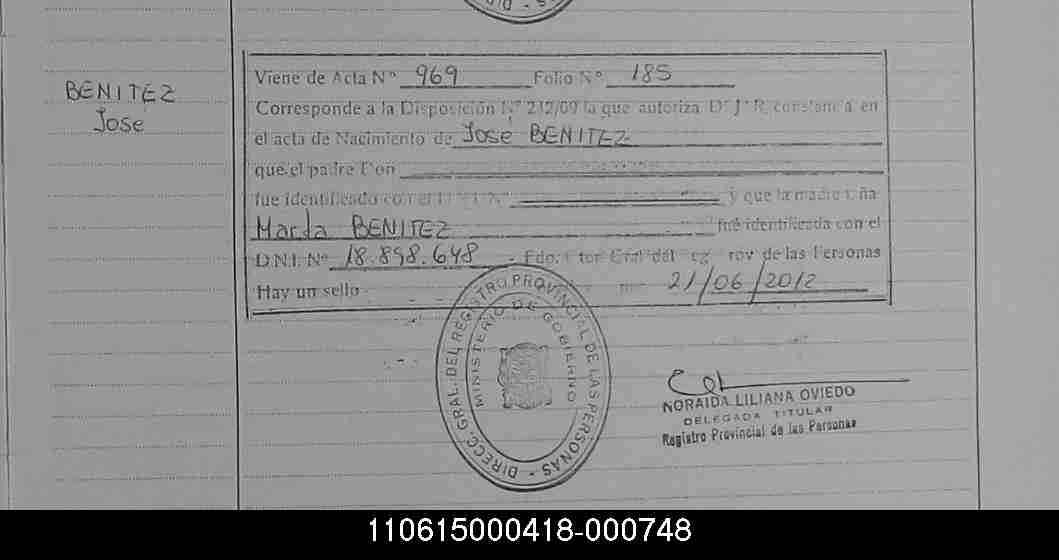 BENITEZ
José
Viene de Acta Nº 969 Folio Nº 185
Corresponde a la Disposición Nº 212/09 la que autoriza D J R constancia en
el acta de Nacimiento de José BENITEZ
que el padre Don
fue identificado con el Nº y que la madre Dña
BENITEZ fué identificada con el
D.N.I. Nº 18.898.648 - Fdo. tor Gral del Reg Prov de las Personas
Hay un sello 21/06/2012
DIRECC. GRAL. DEL REGISTRO PROVINCIAL DE LAS PERSONAS -
MINISTERIO DE GOBIERNO
NORAIDA LILIANA OVIEDO
DELEGADA TITULAR
Registro Provincial de las Personas
110615000418-000748